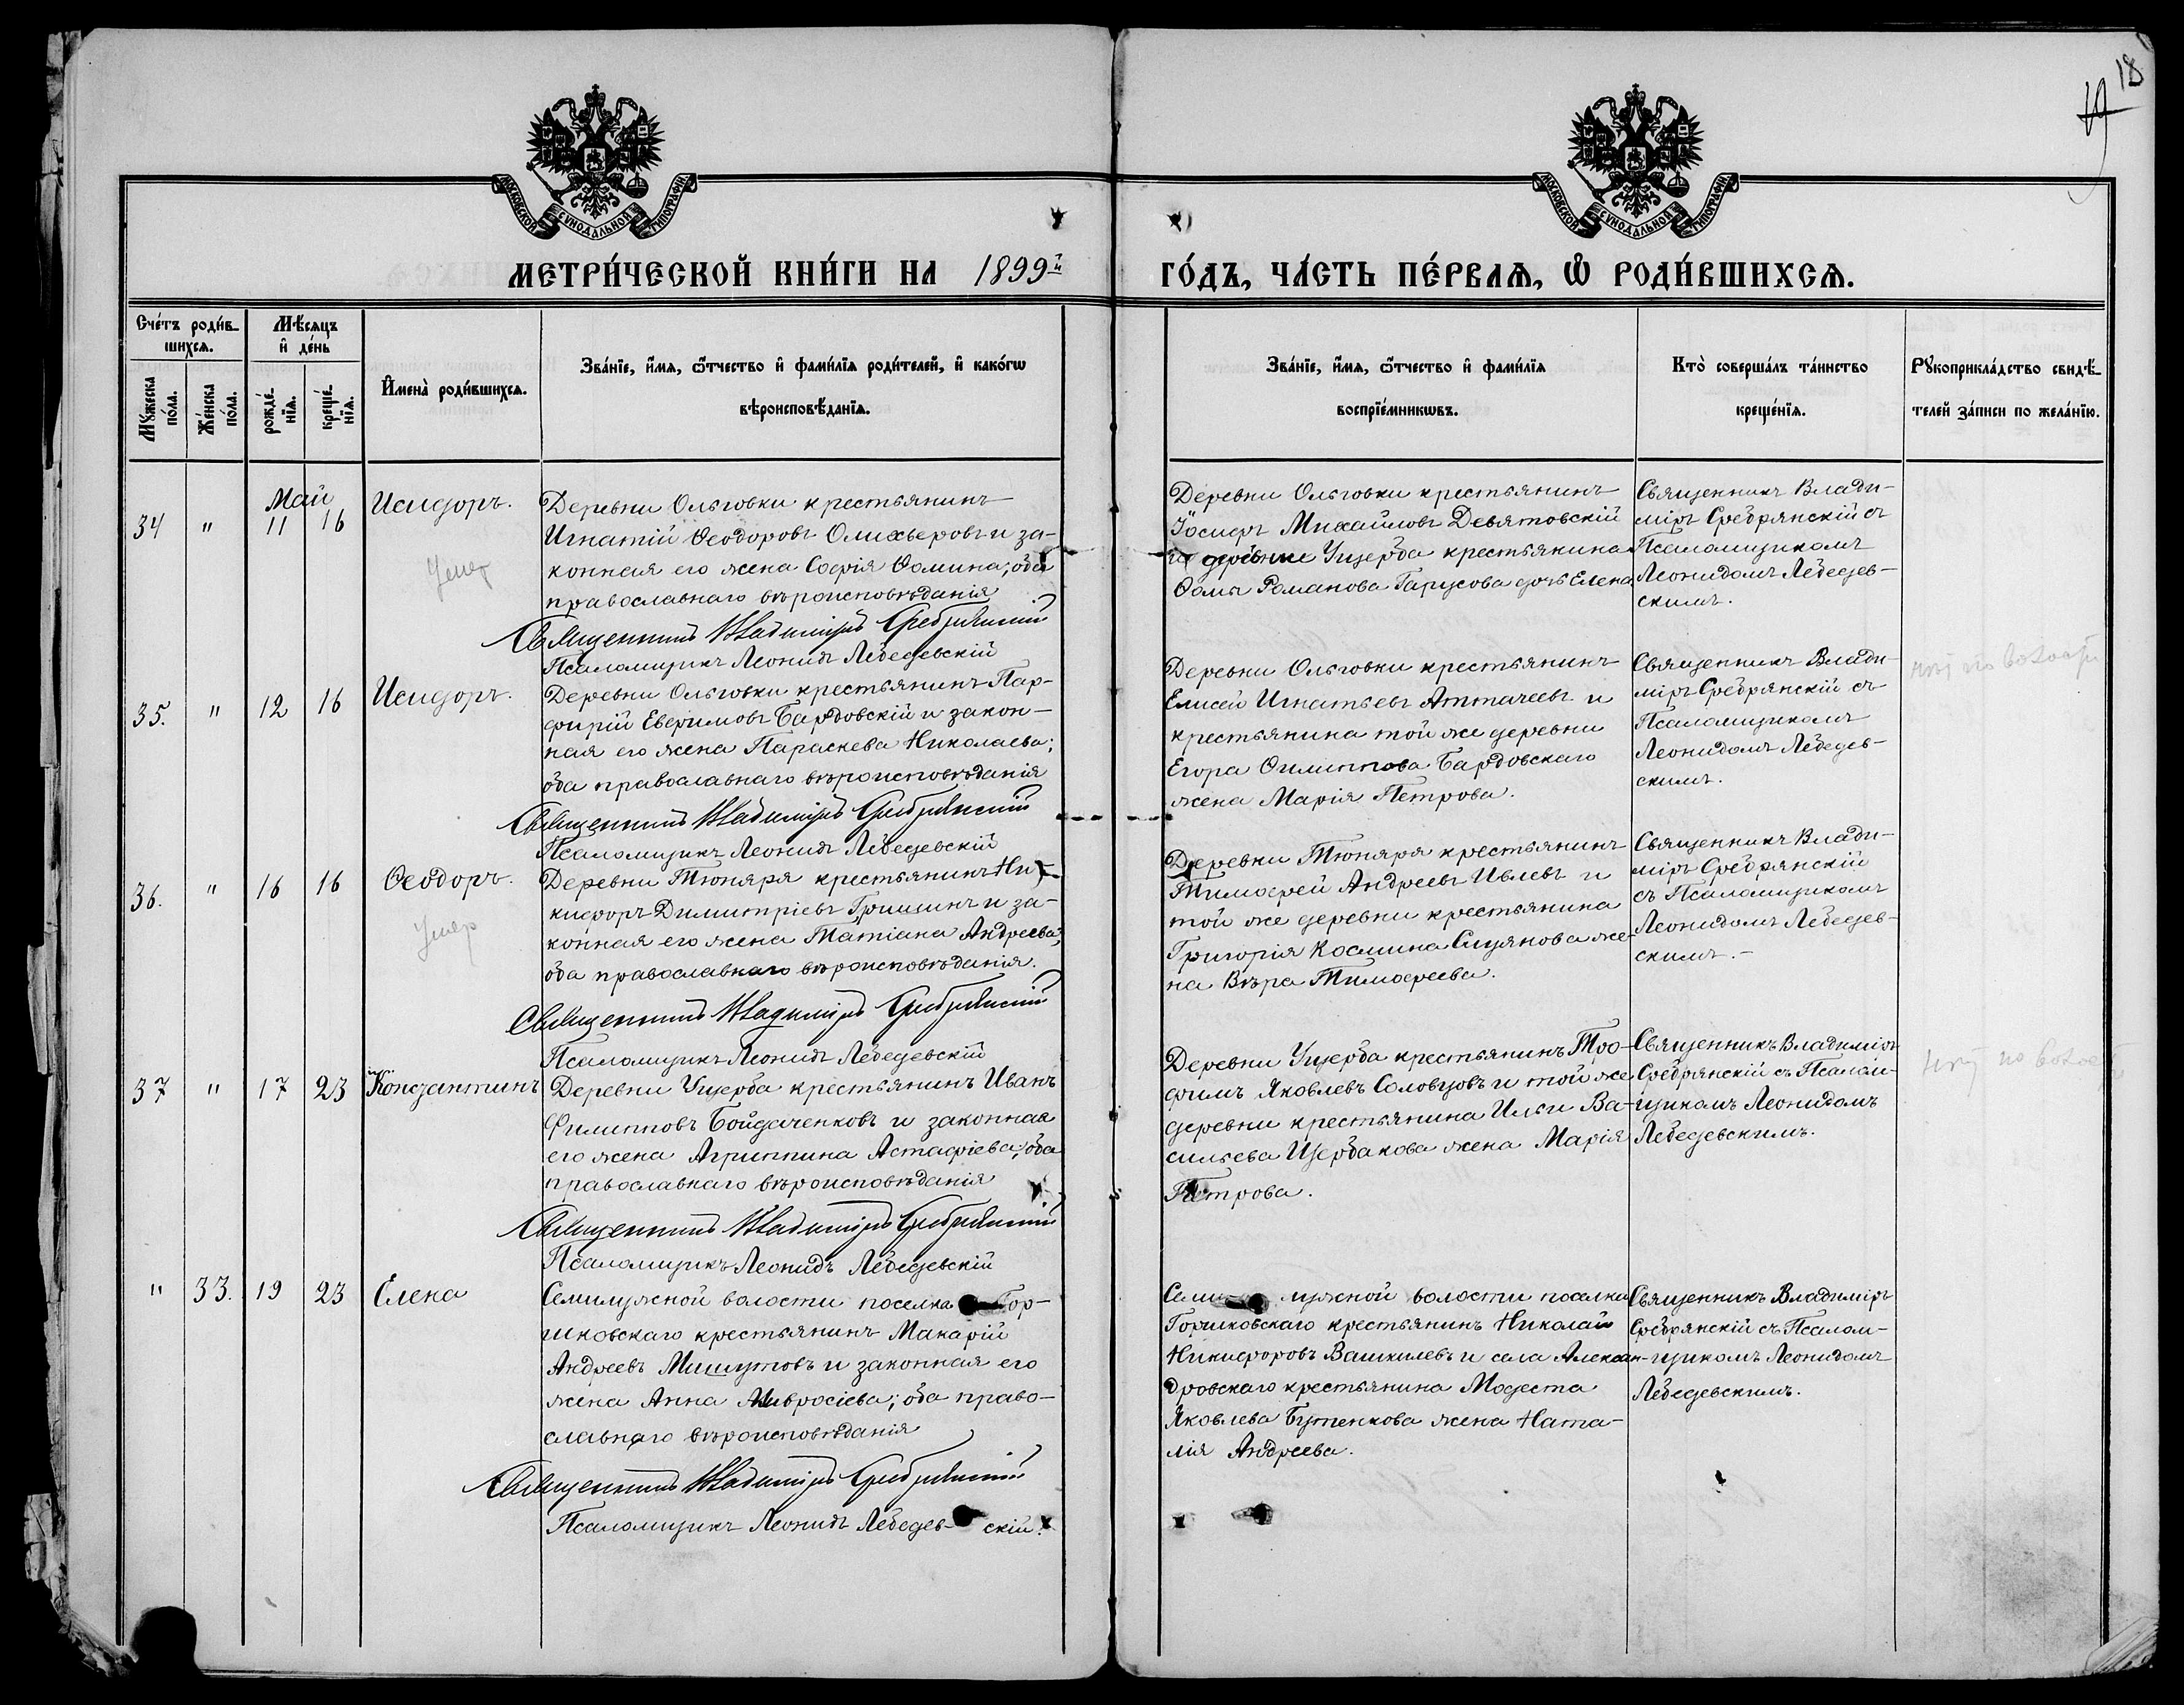 18
19
МОСКОВСКОЙ СѴНОДАЛЬНОЙ ТИПОГРАФІИ
МОСКОВСКОЙ СѴНОДАЛЬНОЙ ТИПОГРАФІИ
МЕТРИ́ЧЕСКОЙ КНИ́ГИ НА 1899й ГО́ДЪ, ЧА́СТЬ ПЕ́РВАѦ, Ѽ РОДИ́ВШИХСѦ.
Сче́тъ роди́в-
шихсѧ.
Мꙋжеска
по́ла.
Же́нска
по́ла.
Мѣ́сѧцъ
и҆ де́нь
рожде́-
нїѧ.
креще́-
нїѧ.
И҆мена̀ роди́вшихсѧ.
Зва́нїе, и҆́мѧ, ѻ҆́тчество и҆ фами́лїѧ роди́телей, и҆ како́гѡ
вѣроисповѣ́данїѧ.
Зва́нїе, и҆́мѧ, ѻ҆́тчество и҆ фами́лїѧ
воспрїе́мникѡвъ.
Кто̀ соверша́лъ та́инство
креще́нїѧ.
Рꙋкоприкла́дство свидѣ́-
телей за́писи по жела́нїю.
Май
34 " 11 16
Исидоръ.
Умер
Деревни Ольговки крестьянинъ
Игнатій Ѳеодоровъ Олихверовъ и за-
конная его жена Софія Ѳомина; оба
православнаго вѣроисповѣданія
Священникъ Владиміръ Сребрянскій
Псаломщикъ Леонидъ Лебедевскій
Деревни Ольговки крестьянинъ
Іосифъ Михайловъ Девятовскій
и деревни Ущерба крестьянина
Ѳомы Романова Гарусова дочь Елена
Священникъ Влади-
міръ Сребрянскій съ
Псаломщикомъ
Леонидомъ Лебедев-
скимъ.
35. " 12 16
Исидоръ.
Деревни Ольговки крестьянинъ Пар-
фирій Евфимовъ Бардовскій и закон-
ная его жена Параскева Николаева;
оба православнаго вѣроисповѣданія
Священникъ Владиміръ Сребрянскій
Псаломщикъ Леонидъ Лебедевскій
Деревни Ольговки крестьянинъ
Елисей Игнатьевъ Аттачеевъ и
крестьянина той же деревни
Егора Филиппова Бардовскаго
жена Марія Петрова.
Священникъ Влади-
міръ Сребрянскій съ
Псаломщикомъ
Леонидомъ Лебедев-
скимъ.
36. " 16 16
Ѳеодоръ.
Умер
Деревни Тюняря крестьянинъ Ни-
кифоръ Димитріевъ Гришинъ и за-
конная его жена Татіана Андреева;
оба православнаго вѣроисповѣданія.
Священникъ Владиміръ Сребрянскій
Псаломщикъ Леонидъ Лебедевскій
Деревни Тюняря крестьянинъ
Тимофей Андреевъ Ивлевъ и
той же деревни крестьянина
Григорія Космина Слуянова же-
на Вѣра Тимофеева.
Священникъ Влади-
міръ Сребрянскій
съ Псаломщикомъ
Леонидомъ Лебедев-
скимъ.-
37 " 17 23
Константинъ
Деревни Ущерба крестьянинъ Иванъ
Филипповъ Бойдаченковъ и законная
его жена Агриппина Астафіева; оба
православнаго вѣроисповѣданія
Священникъ Владиміръ Сребрянскій
Псаломщикъ Леонидъ Лебедевскій
Деревни Ущерба крестьянинъ Тро-
фимъ Яковлевъ Соловцовъ и той же
деревни крестьянина Ильи Ва-
сильева Щербакова жена Марія
Петрова.
Священникъ Владиміръ
Сребрянскій съ Псалом-
щикомъ Леонидомъ
Лебедевскимъ.
" 33. 19 23
Елена
Семилужной волости поселка Гор-
шковскаго крестьянинъ Макарій
Андреевъ Мишутовъ и законная его
жена Анна Амвросіева; оба право-
славнаго вѣроисповѣданія
Священникъ Владиміръ Сребрянскій
Псаломщикъ Леонидъ Лебедев- скій.
Семи лужной волости поселка
Горшковскаго крестьянинъ Николай
Никифоровъ Вашкилевъ и села Алексан-
дровскаго крестьянина Модеста
Яковлева Бутенкова жена Ната-
лія Андреева.
Священникъ Владиміръ
Сребрянскій съ Псалом-
щикомъ Леонидомъ
Лебедевскимъ.